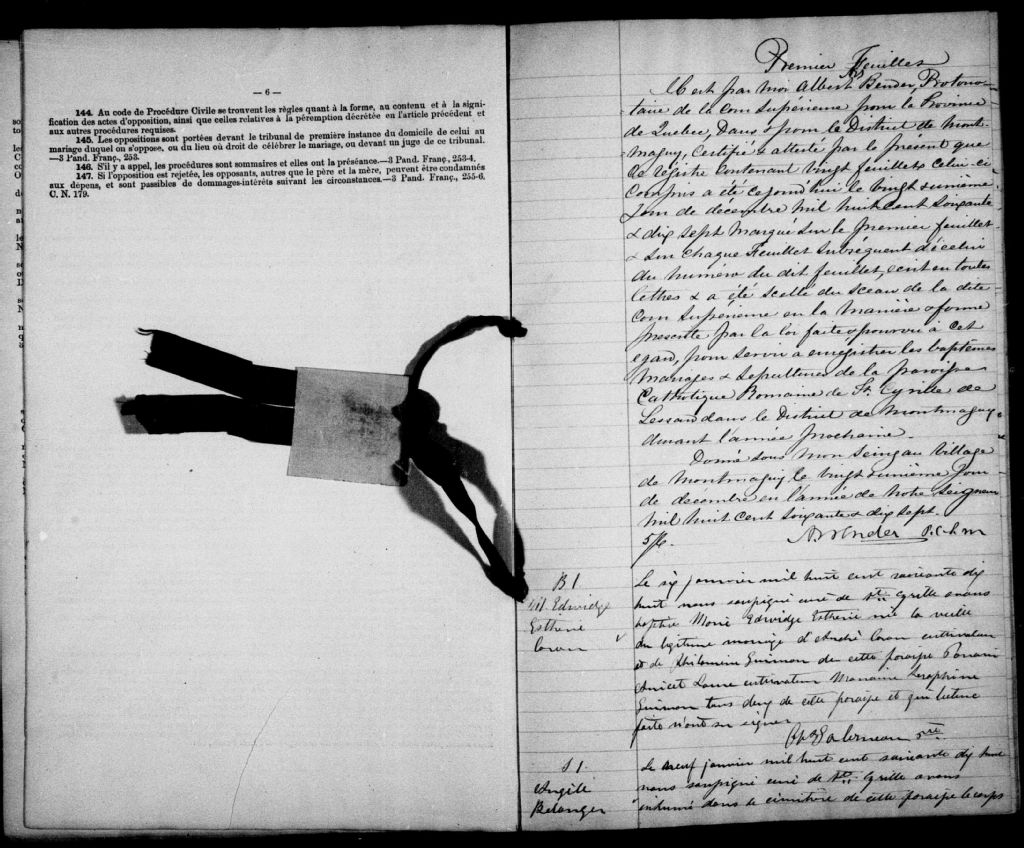 — 6 —
144. Au code de Procédure Civile se trouvent les règles quant à la forme, au contenu et à la signi-
fication des actes d'opposition, ainsi que celles relatives à la péremption décrétée en l'article précédent et
aux autres procédures requises.
145. Les oppositions sont portées devant le tribunal de première instance du domicile de celui au
mariage duquel on s'oppose, ou du lieu où droit de célébrer le mariage, ou devant un juge de ce tribunal.
—3 Pand. Franç., 253.
146. S'il y a appel, les procédures sont sommaires et elles ont la préséance.—3 Pand. Franç., 253-4.
147. Si l'opposition est rejetée, les opposants, autres que le père et la mère, peuvent être condamnés
aux dépens, et sont passibles de dommages-intérêts suivant les circonstances.—3 Pand. Franç., 255-6.
C. N. 179.
Premier Feuillet
par moi Albert Bender Protono-
taire de la cour Supérieure pour la Province
de Québec, Dans & pour le District de Mont-
-magny, Certifié & atteste par le présent que
ce régistre Contenant vingt feuillets Celui-ci
Compris a été cejourd'hui le vingt & unième
Jour de décembre mil huit cent soixante
& dix sept marqué sur le premier feuillet
& sur chaque Feuillet subséquent d'icelui
du numéro du dit feuillet, écrit en toutes
lettres & a été scellé du sceau de la dite
Cour Supérieure en la manière & forme
prescrite par la loi faite & pourvu à cet
egard, pour servir a enregistrer les baptêmes
Mariages & sépultures de la paroisse
Catholique Romaine de St. Cyrille de
Lessard dans le District de Montmagny
durant l'année prochaine.
Donné sous mon seing au Village
de Montmagny le vingt & unième Jour
de décembre en l'année de notre Seigneur
mil huit cent soixante & dix sept.
A. Bender P.C.S.M
B 1
Edwidge
Esthérie
Caron
Le six janvier mil huit cent soixante dix
huit nous soussigné curé de St. Cyrille avons
baptisé Marie Edwidge Esthérie née la veille
du légitime mariage d'André Caron cultivateur
et de Philomène Guimon de cette paroisse Parrain
Anicet cultivateur Marraine Séraphine
Guimon tous deux de cette paroisse et qui lecture
faite n'ont su signer
S 1.
Angèle
Belanger
Le neuf janvier mil huit cent soixante dix huit
nous soussigné curé de St. Cyrille avons
inhumé dans le cimetière de cette paroisse le corps